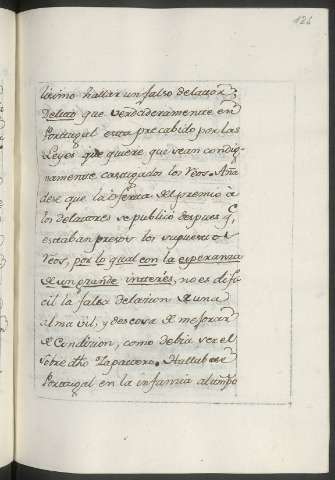 126
lisimo hallar un falso delator:
Delito que verdaderamente en
Portugal esta precabido por las
Leyes que quiere que sean condig-
namente castigados los Reos. Aña
dese que la oferta del premio à
los delatores se publicó despues q.e
estaban presos los supuestos
Reos, por lo qual con la esperanza
de un grande interés, no es difi-
cil la falsa delacion de una
alma vil, y deseosa de mejorar
de Condicion, como debia ser el
sobre dho Zapatero. Hallabase
Portugal en la infamia al tiempo